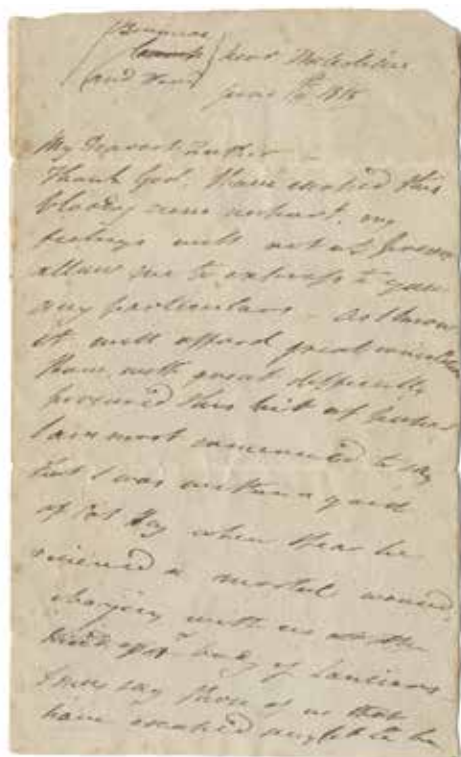 near
June 1815
My Dearest
Thank God I have escaped this
bloody unhurt, my
feelings will not at present
allow me to express to you
any particulars - as I know
it will afford great
I have with great difficulty
procured this bit of paper
I am most concerned to say
that I was within a yard
of Col Hay when he
received a mortal wound,
charging with us at the
head of body of Lancers
I must say those of us that
have escaped ought to be